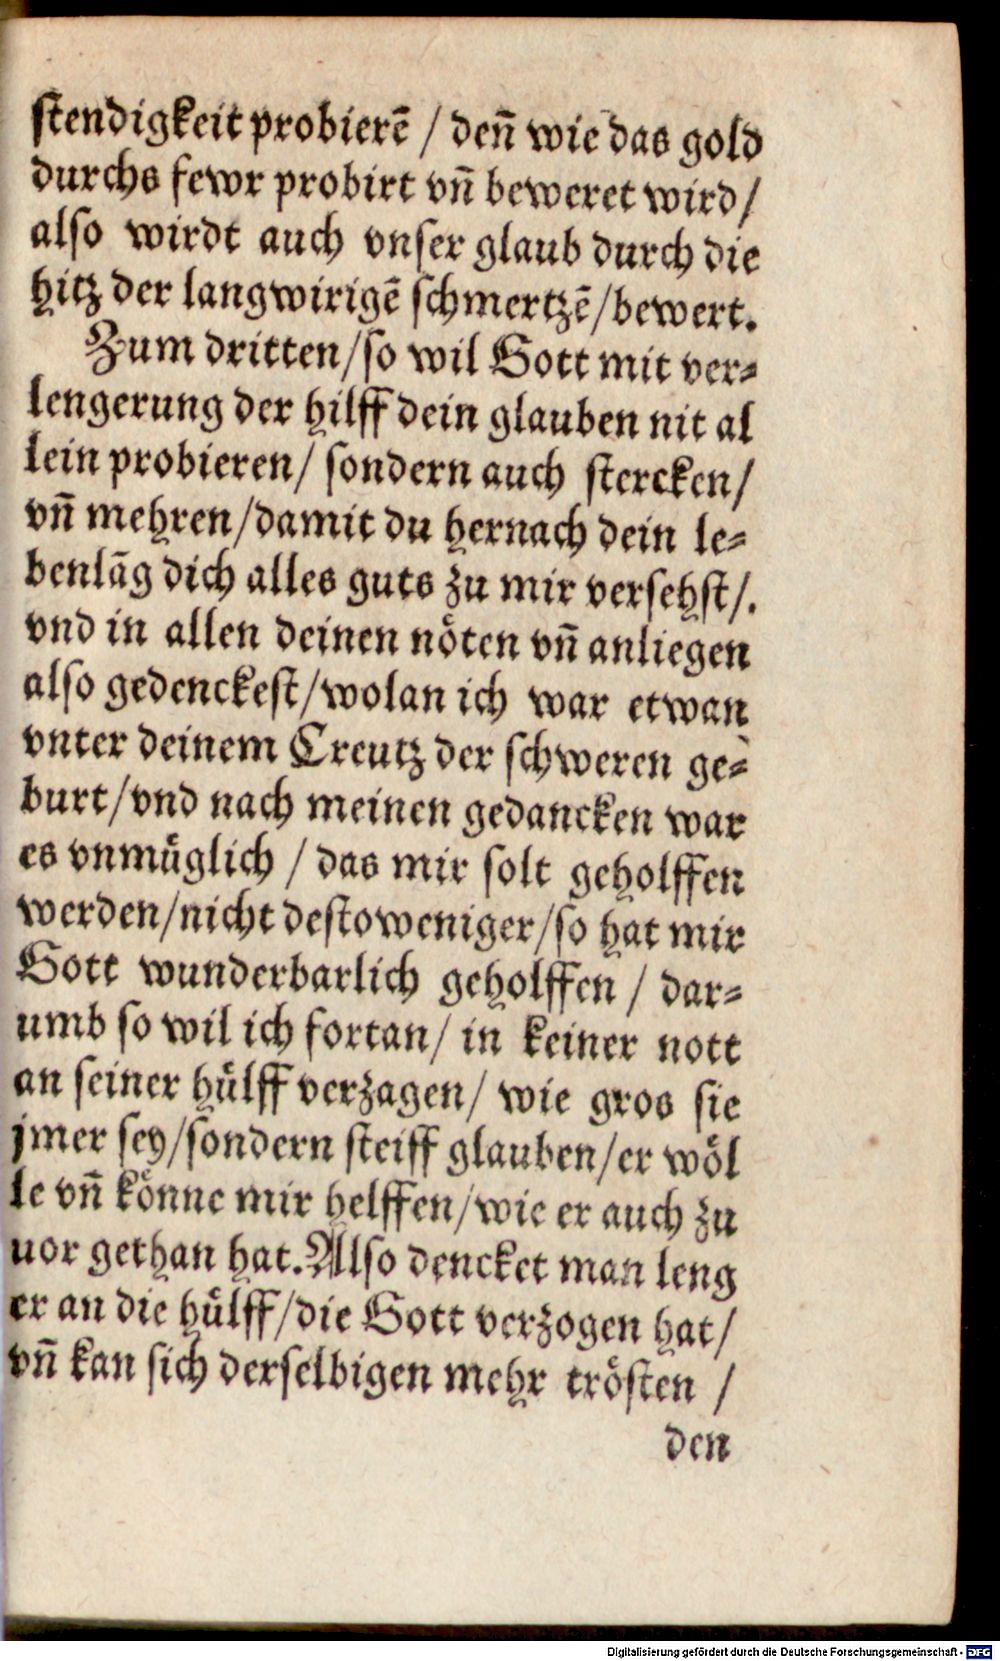 stendigkeit probierē / deñ wie das gold
durchs fewr probirt vñ beweret wird/
also wirdt auch vnser glaub durch die
hitz der langwirigē schmertzē/bewert.
Zum dritten/so wil Gott mit ver⸗
lengerung der hilff dein glauben nit al
lein probieren/ sondern auch stercken/
vñ mehren/damit du hernach dein le⸗
benlāg dich alles guts zu mir versehst/.
vnd in allen deinen nöten vñ anliegen
also gedenckest/wolan ich war etwan
vnter deinem Creutz der schweren ge⸗
burt/vnd nach meinen gedancken war
es vnmüglich / das mir solt geholffen
werden/nicht destoweniger/so hat mir
Gott wunderbarlich geholffen / dar⸗
umb so wil ich fortan/ in keiner nott
an seiner hülff verzagen/ wie gros sie
jmer sey/sondern steiff glauben/er wöl
le vñ könne mir helffen/wie er auch zu
uor gethan hat.Also dencket man leng
er an die hülff/die Gott verzogen hat/
vñ kan sich derselbigen mehr trösten /
den
Digitalisierung gefördert durch die Deutsche Forschungsgemeinschaft - DFG